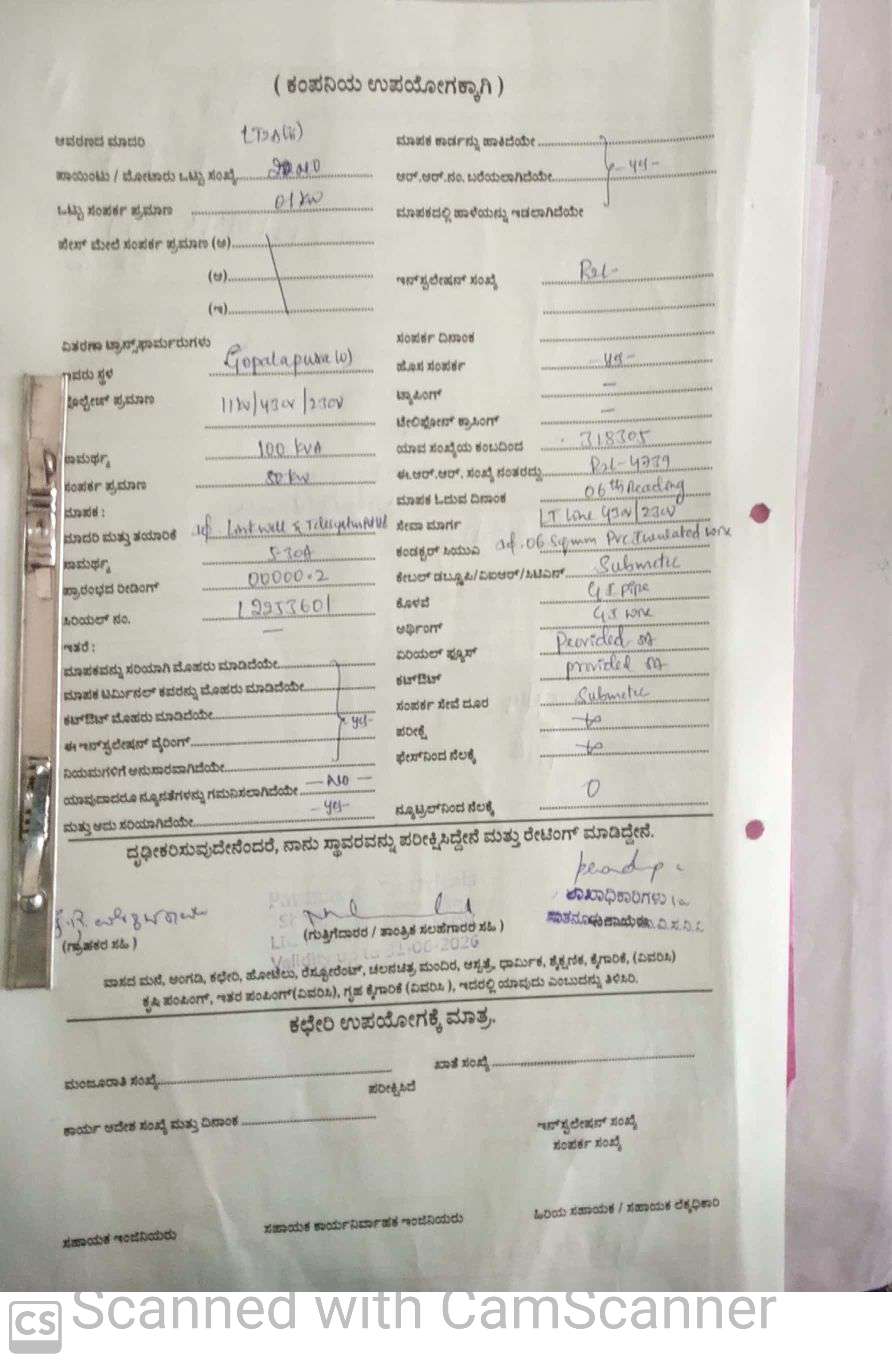 ( ಕಂಪನಿಯ ಉಪಯೋಗಕ್ಕಾಗಿ )
ಆವರಣದ ಮಾದರಿ
ಮಾಪಕ ಕಾರ್ಡನ್ನು ಹಾಕಿದೆಯೇ
ಪಾಯಿಂಟು / ಮೋಟಾರು ಒಟ್ಟು ಸಂಖ್ಯೆ
ಆರ್.ಆರ್.ನಂ. ಬರೆಯಲಾಗಿದೆಯೇ
ಒಟ್ಟು ಸಂಪರ್ಕ ಪ್ರಮಾಣ 01 kw
ಮಾಪಕದಲ್ಲಿ ಹಾಳೆಯನ್ನು ಇಡಲಾಗಿದೆಯೇ
ಫೇಸ್ ಮೇಲೆ ಸಂಪರ್ಕ ಪ್ರಮಾಣ (ಅ)
(ಆ)
(ಇ)
ಇನ್‌ಸ್ಟಲೇಷನ್ ಸಂಖ್ಯೆ
ವಿತರಣಾ ಟ್ರಾನ್ಸ್‌ಫಾರ್ಮರುಗಳು
ಸಂಪರ್ಕ ದಿನಾಂಕ
ಸ್ಥಳ Gopalapura
ಹೊಸ ಸಂಪರ್ಕ
ಪ್ರಮಾಣ 11kv/430v/230v
ಟ್ಯಾಪಿಂಗ್ –
ಟೆಲಿಫೋನ್ ಕ್ರಾಸಿಂಗ್ –
ಸಾಮರ್ಥ್ಯ 100 kVA
ಯಾವ ಸಂಖ್ಯೆಯ ಕಂಬದಿಂದ 318305
ಸಂಪರ್ಕ ಪ್ರಮಾಣ 80 kw
ಈ.ಆರ್.ಆರ್. ಸಂಖ್ಯೆ ನಂತರದ್ದು
ಮಾಪಕ :
ಮಾಪಕ ಓದುವ ದಿನಾಂಕ 06th Reading
ಮಾದರಿ ಮತ್ತು ತಯಾರಿಕೆ
ಸೇವಾ ಮಾರ್ಗ LT Line 430v/230v
ಸಾಮರ್ಥ್ಯ 5-30A
ಕಂಡಕ್ಟರ್ ಸಿಯುಎ 06 Sqmm Pvc Insulated wire
ಪ್ರಾರಂಭದ ರೀಡಿಂಗ್ 00000.2
ಕೇಬಲ್ ಡಬ್ಲ್ಯೂಪಿ/ವಿಐಆರ್/ಸಿಟಿಎಸ್
ಸಿರಿಯಲ್ ನಂ. L2253601
ಕೊಳವೆ GI pipe
ಇತರೆ : –
ಅರ್ಥಿಂಗ್ GI wire
ಮಾಪಕವನ್ನು ಸರಿಯಾಗಿ ಮೊಹರು ಮಾಡಿದೆಯೇ
ಏರಿಯಲ್ ಫ್ಯೂಸ್ Provided
ಮಾಪಕ ಟರ್ಮಿನಲ್ ಕವರನ್ನು ಮೊಹರು ಮಾಡಿದೆಯೇ
ಕಟ್‌ಔಟ್ provided
ಕಟ್‌ಔಟ್ ಮೊಹರು ಮಾಡಿದೆಯೇ
ಸಂಪರ್ಕ ಸೇವೆ ದೂರ
ಈ ಇನ್‌ಸ್ಟಲೇಷನ್ ವೈರಿಂಗ್
ಪರೀಕ್ಷೆ
ನಿಯಮಗಳಿಗೆ ಅನುಸಾರವಾಗಿದೆಯೇ
ಫೇಸ್‌ನಿಂದ ನೆಲಕ್ಕೆ
ಯಾವುದಾದರೂ ನ್ಯೂನತೆಗಳನ್ನು ಗಮನಿಸಲಾಗಿದೆಯೇ – No –
ಮತ್ತು ಅದು ಸರಿಯಾಗಿದೆಯೇ – yes –
ನ್ಯೂಟ್ರಲ್‌ನಿಂದ ನೆಲಕ್ಕೆ 0
ದೃಢೀಕರಿಸುವುದೇನೆಂದರೆ, ನಾನು ಸ್ಥಾವರವನ್ನು ಪರೀಕ್ಷಿಸಿದ್ದೇನೆ ಮತ್ತು ರೇಟಿಂಗ್ ಮಾಡಿದ್ದೇನೆ.
ಶಾಖಾಧಿಕಾರಿಗಳು
(ಗ್ರಾಹಕರ ಸಹಿ )
(ಗುತ್ತಿಗೆದಾರರ / ತಾಂತ್ರಿಕ ಸಲಹೆಗಾರರ ಸಹಿ )
ವಾಸದ ಮನೆ, ಅಂಗಡಿ, ಕಛೇರಿ, ಹೋಟೆಲು, ರೆಸ್ಟೋರೆಂಟ್, ಚಲನಚಿತ್ರ ಮಂದಿರ, ಆಸ್ಪತ್ರೆ, ಧಾರ್ಮಿಕ, ಶೈಕ್ಷಣಿಕ, ಕೈಗಾರಿಕೆ, (ವಿವರಿಸಿ)
ಕೃಷಿ ಪಂಪಿಂಗ್, ಇತರ ಪಂಪಿಂಗ್(ವಿವರಿಸಿ), ಗೃಹ ಕೈಗಾರಿಕೆ (ವಿವರಿಸಿ ), ಇದರಲ್ಲಿ ಯಾವುದು ಎಂಬುದನ್ನು ತಿಳಿಸಿರಿ.
ಕಛೇರಿ ಉಪಯೋಗಕ್ಕೆ ಮಾತ್ರ.
ಮಂಜೂರಾತಿ ಸಂಖ್ಯೆ
ಖಾತೆ ಸಂಖ್ಯೆ
ಪರೀಕ್ಷಿಸಿದೆ
ಕಾರ್ಯ ಆದೇಶ ಸಂಖ್ಯೆ ಮತ್ತು ದಿನಾಂಕ
ಇನ್‌ಸ್ಟಲೇಷನ್ ಸಂಖ್ಯೆ
ಸಂಪರ್ಕ ಸಂಖ್ಯೆ
ಸಹಾಯಕ ಇಂಜಿನಿಯರು
ಸಹಾಯಕ ಕಾರ್ಯನಿರ್ವಾಹಕ ಇಂಜಿನಿಯರು
ಹಿರಿಯ ಸಹಾಯಕ / ಸಹಾಯಕ ಲೆಕ್ಕಾಧಿಕಾರಿ
CS Scanned with CamScanner